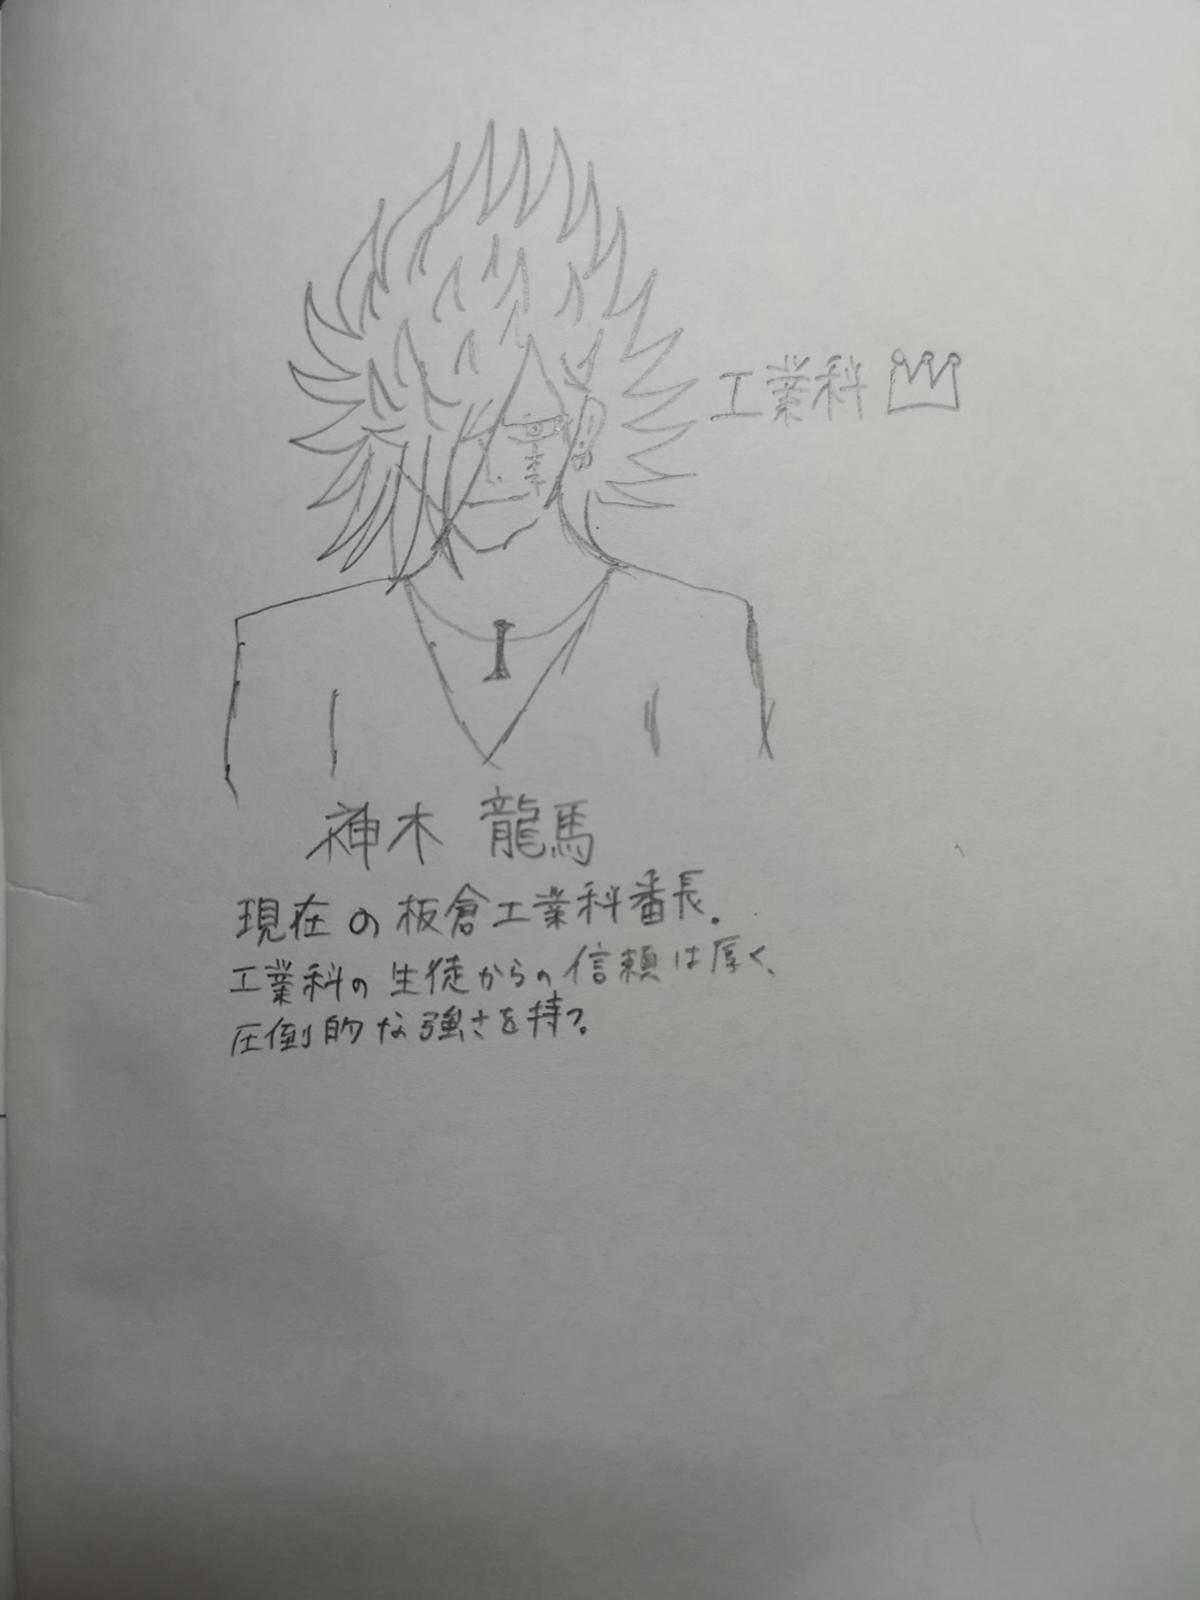 工業科
神木 龍馬
現在の板倉工業科番長.
工業科の生徒からの信頼は厚く、
圧倒的な強さを持つ。